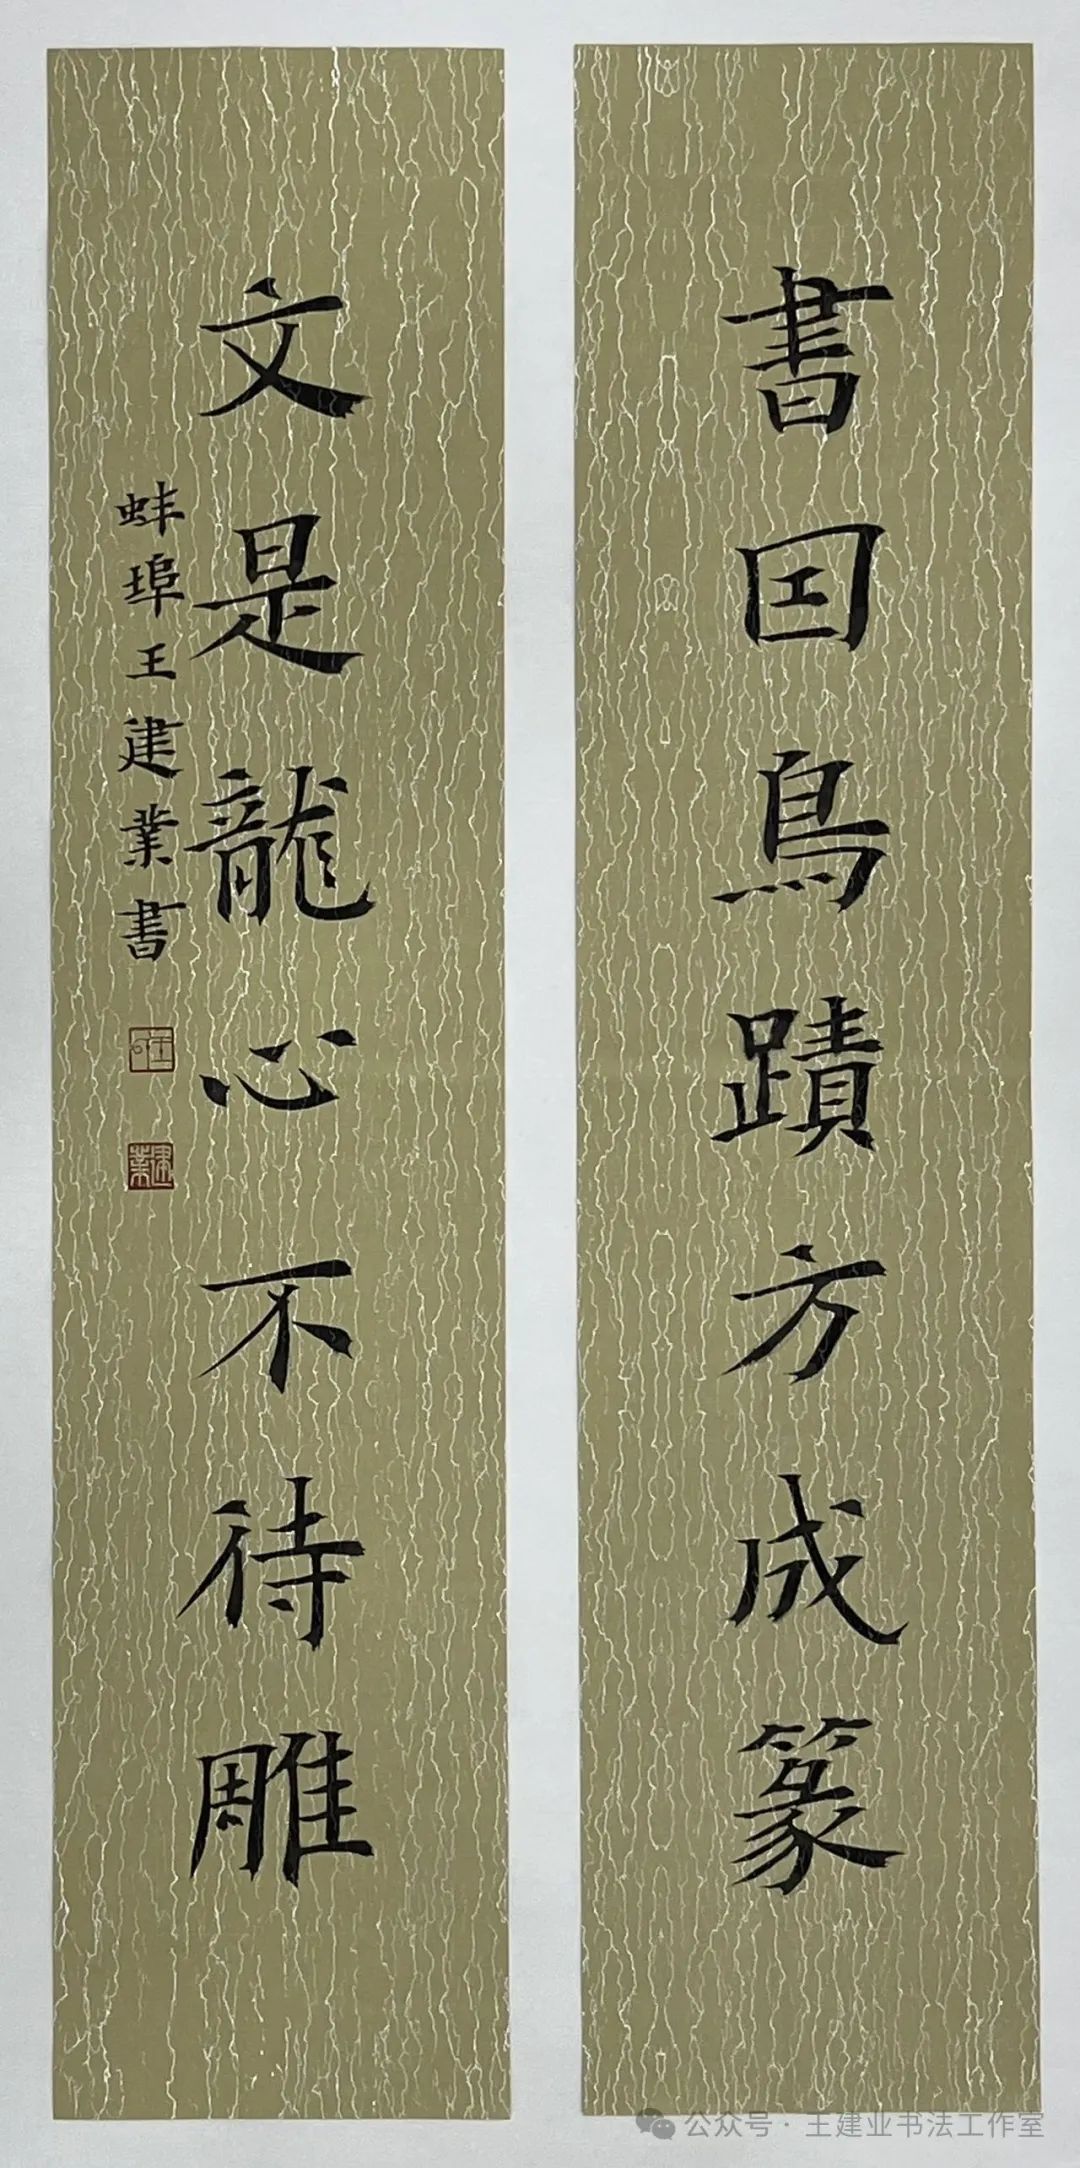 書因鳥蹟方成篆
文是龍心不待雕
蚌埠王建業書
建業
公众号·王建业书法工作室